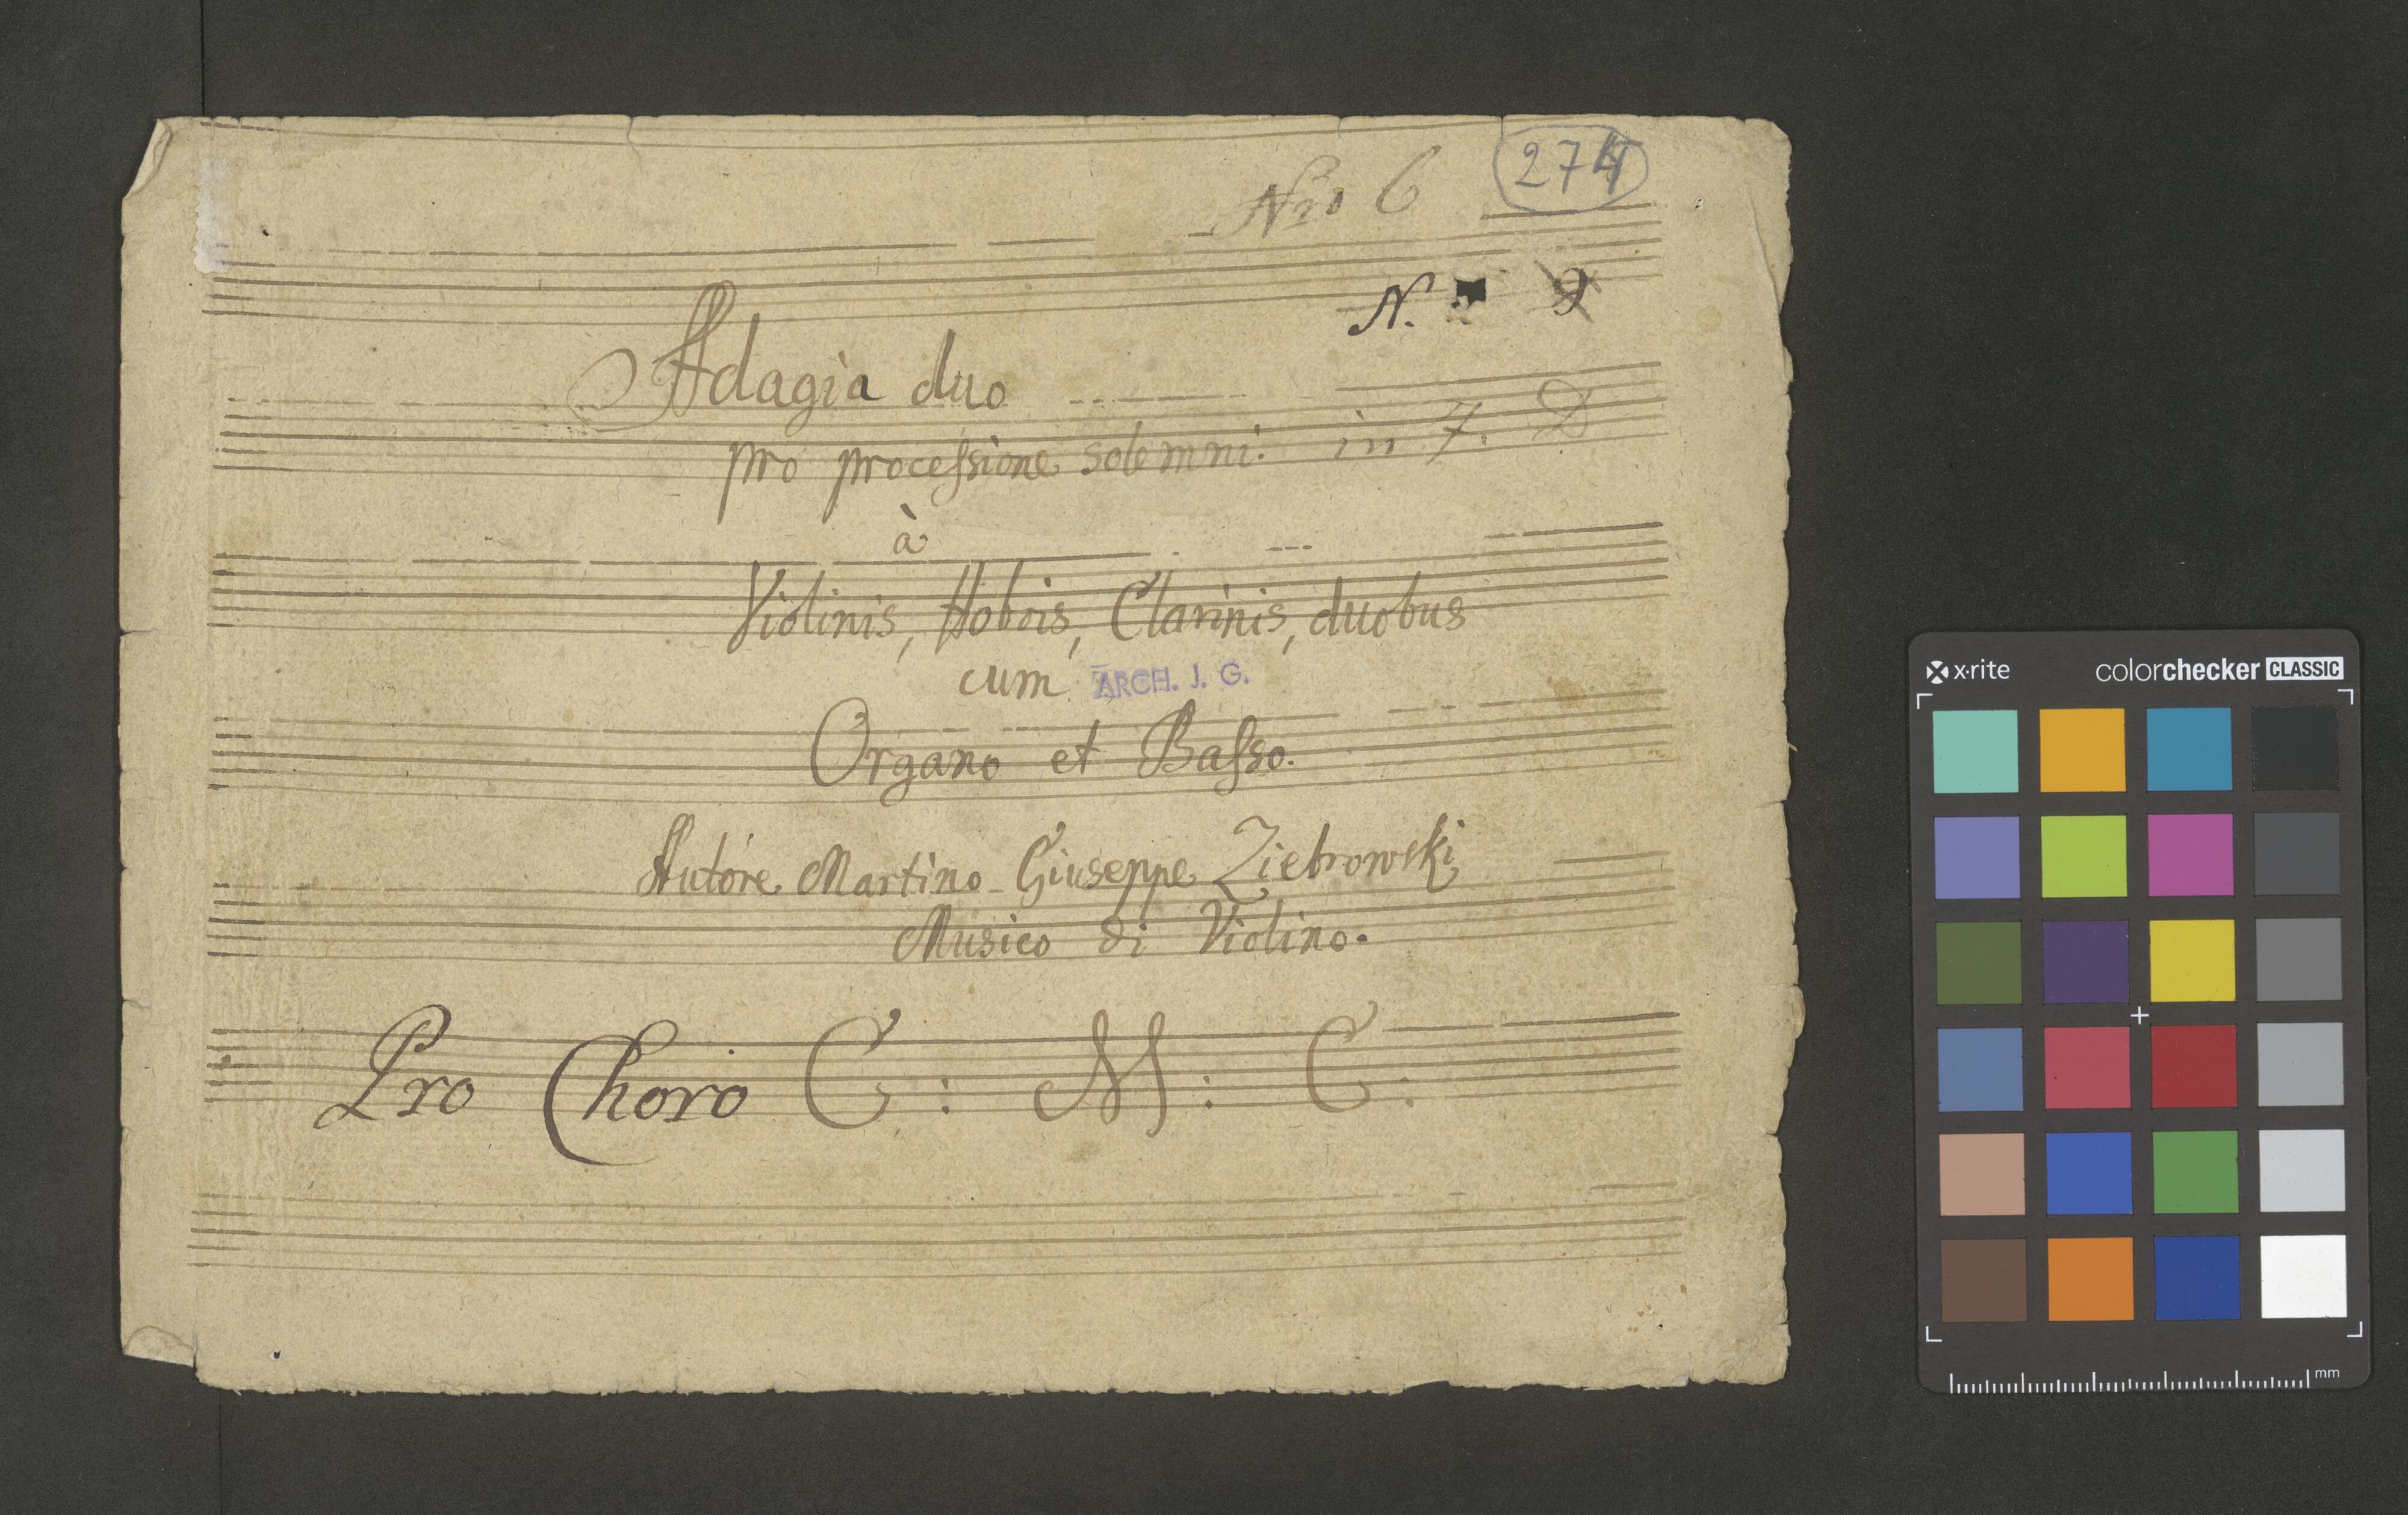 274
Nro 6
N. 9
Adagia duo
pro processione solemni. in 7. D
à
Violinis, Hobois, Clarinis, duobus
cum ARCH. J. G.
Organo et Basso.
Autore Martino Giuseppe Ziebrowski
Musico di Violino.
Pro Choro C: M: C:
x·rite colorchecker CLASSIC
mm